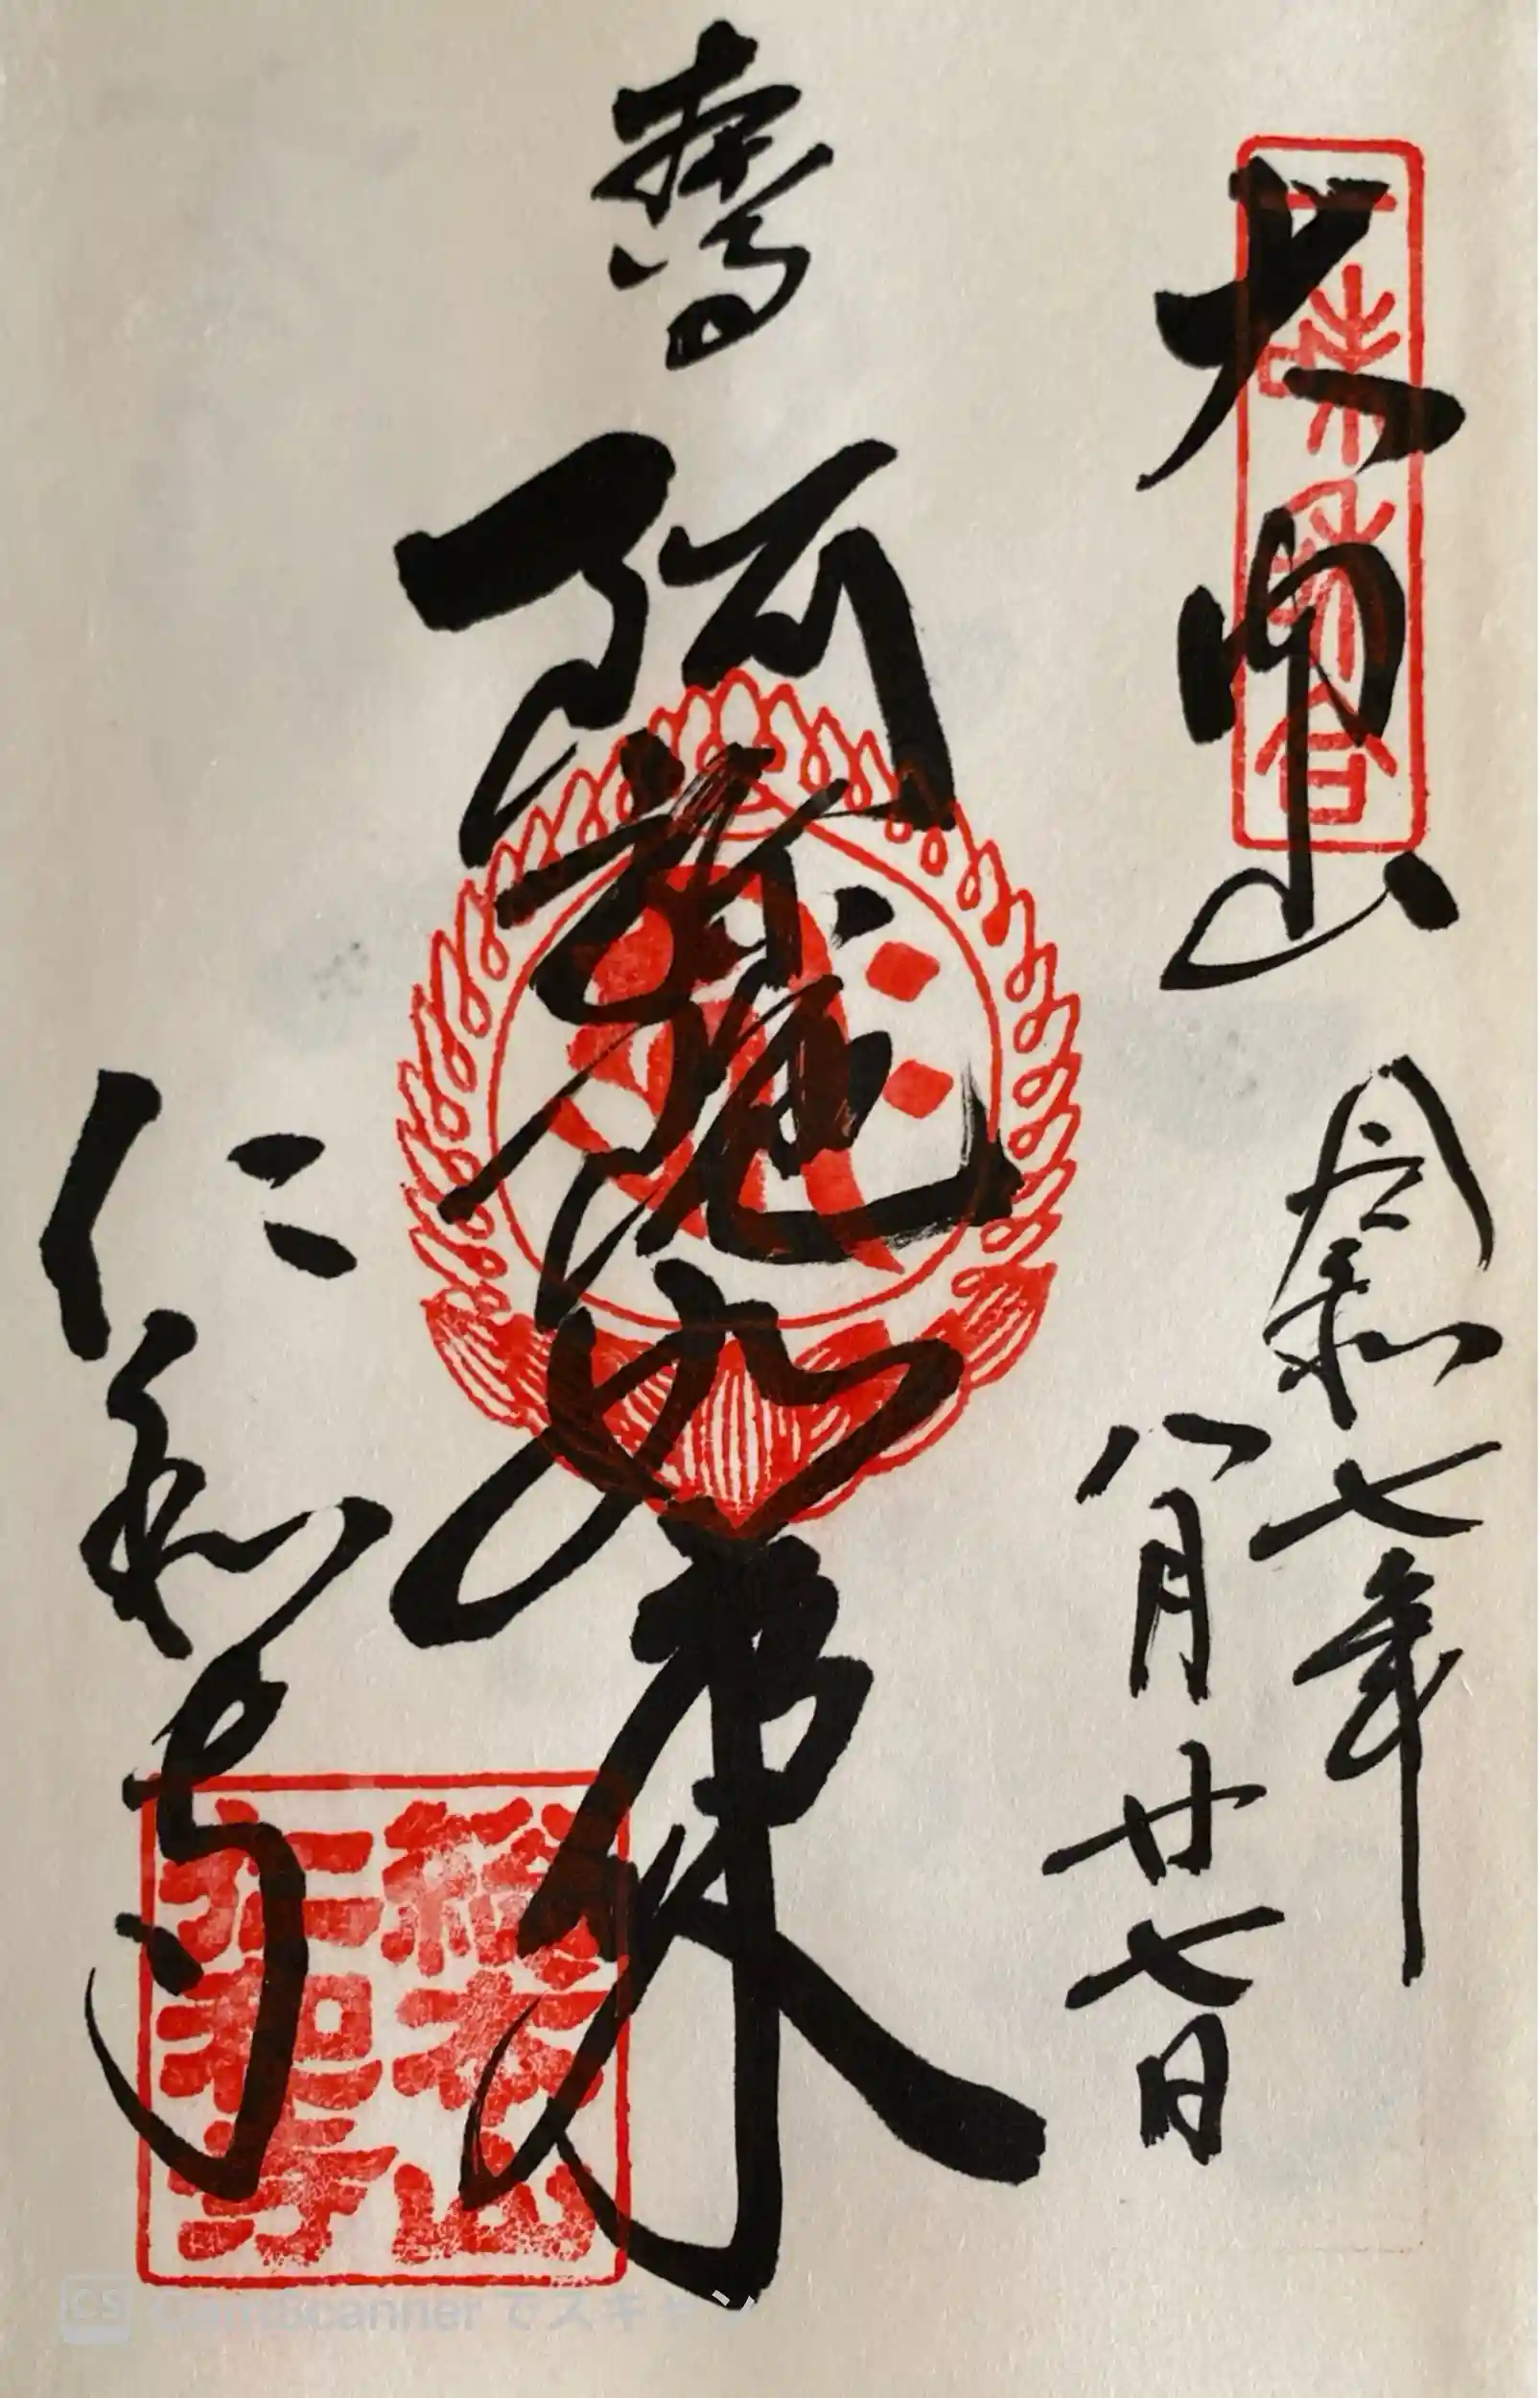 一味和合
大内山
令和七年
八月廿七日
阿弥陀如来
仁和寺
総本山
仁和寺
CS CamScanner でスキャン